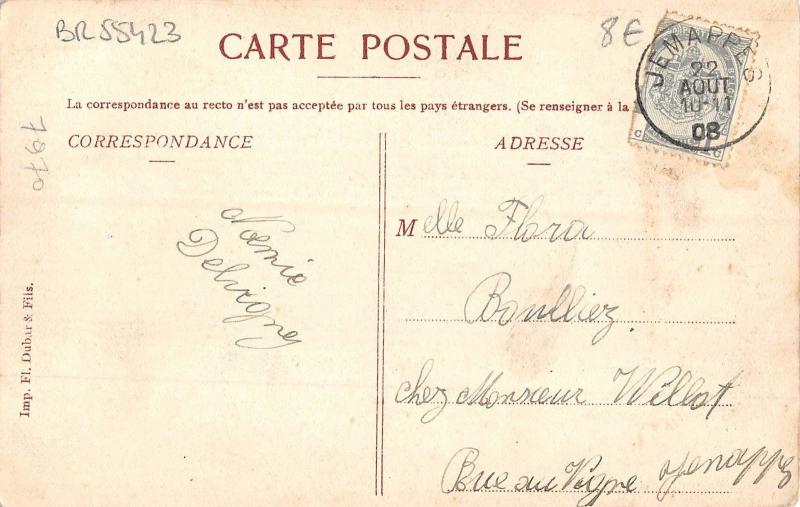 BR55423
8E
CARTE POSTALE
JEMAPPES
22
AOUT
10-11
08
La correspondance au recto n'est pas acceptée par tous les pays étrangers. (Se renseigner à la
CORRESPONDANCE
ADRESSE
7970
Noemie
Delvigne
Melle Flora
Boulliez
chez Monsieur Willot
Rue au Vigne Jemappes
Imp. Fl. Dubar & Fils.